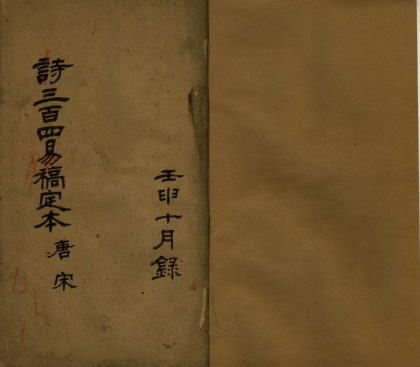 詩三百四易稿定本 唐 宋
壬申十月錄